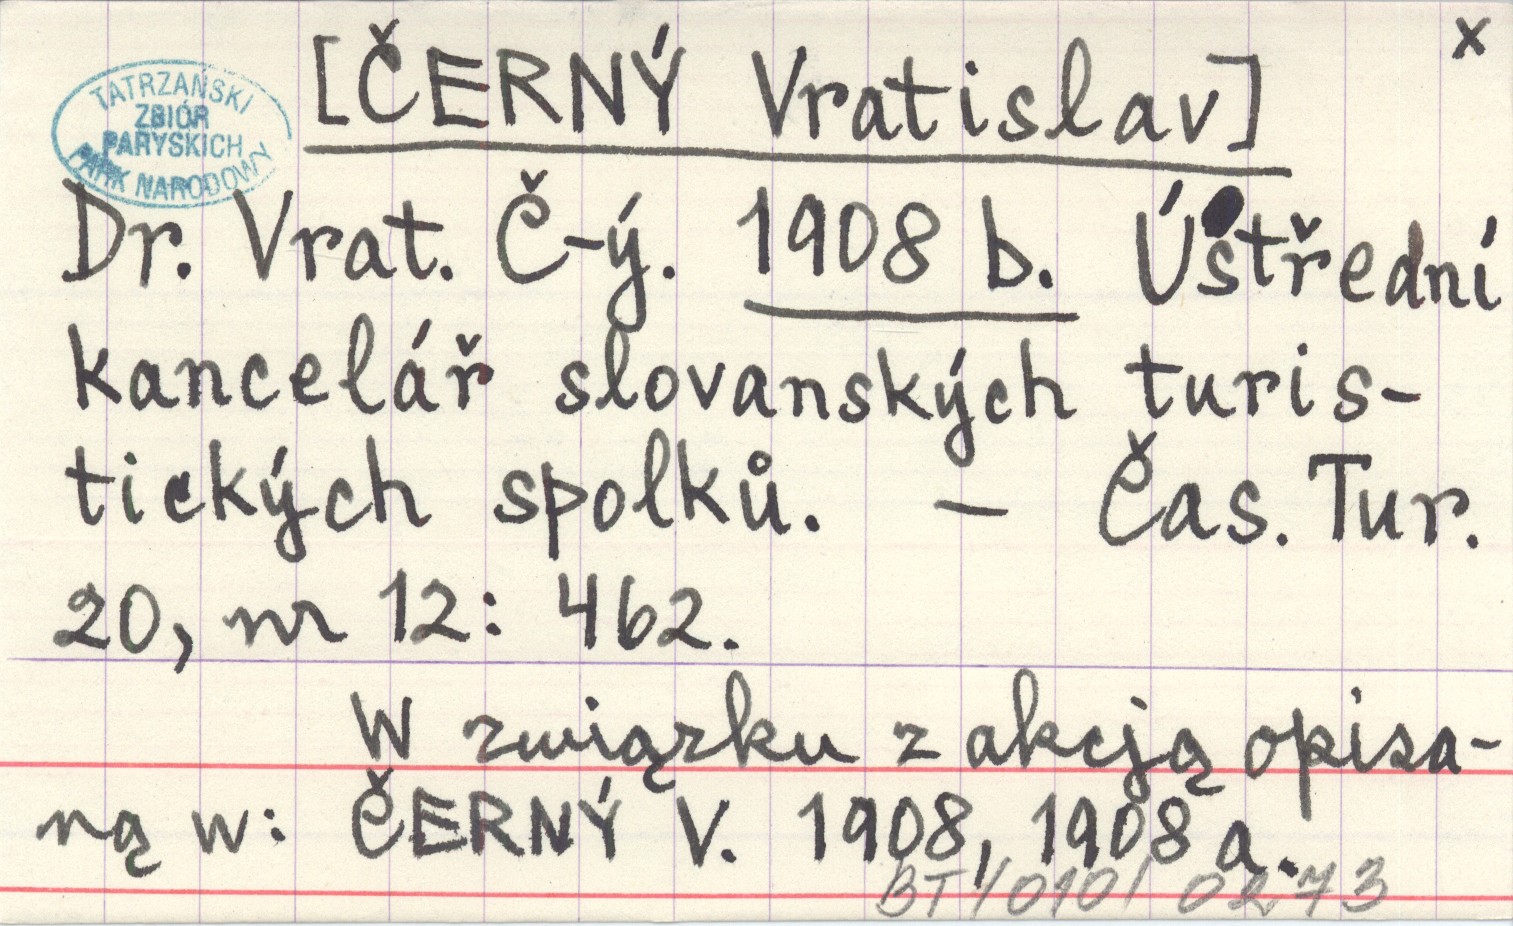 x
[ČERNÝ Vratislav]
TATRZAŃSKI
ZBIÓR
PARYSKICH
PARK NARODOWY
Dr. Vrat. Č-ý. 1908 b. Ústřední
kancelář slovanských turis-
tických spolků. — Čas. Tur.
20, nr 12: 462.
W związku z akcją opisa-
ną w: ČERNÝ V. 1908, 1908 a.
BT/010/ 0273